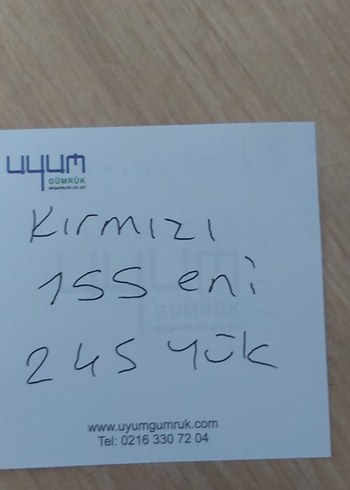 uyum
GÜMRÜK
Kırmızı
155 eni
245 yük
www.uyumgumruk.com
Tel: 0216 330 72 04